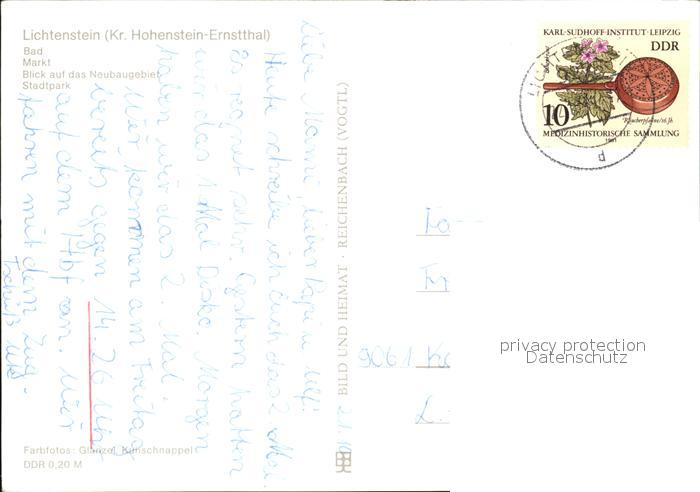 Lichtenstein (Kr. Hohenstein-Ernstthal)
Bad
Markt
Blick auf das Neubaugebiet
Stadtpark
Liebe Mami, lieber Papi u. Ulf!
Heute schreibe ich Euch das 2. Mal.
Es regnet sehr. Gestern hatten
wir das 1. Mal Disko. Morgen
haben wir das 2. Mal.
Wir kommen am Freitag
bereits gegen 14.26 Uhr
auf dem Hbf an. Wir
fahren mit dem Zug.
Tschüß
Farbfotos: Glänzel, Kunschnappel
DDR 0,20 M
BILD UND HEIMAT · REICHENBACH (VOGTL)
KARL-SUDHOFF-INSTITUT·LEIPZIG
DDR
10
Räucherpfanne/16.Jh.
MEDIZINHISTORISCHE SAMMLUNG
1981
d
9061
privacy protection
Datenschutz